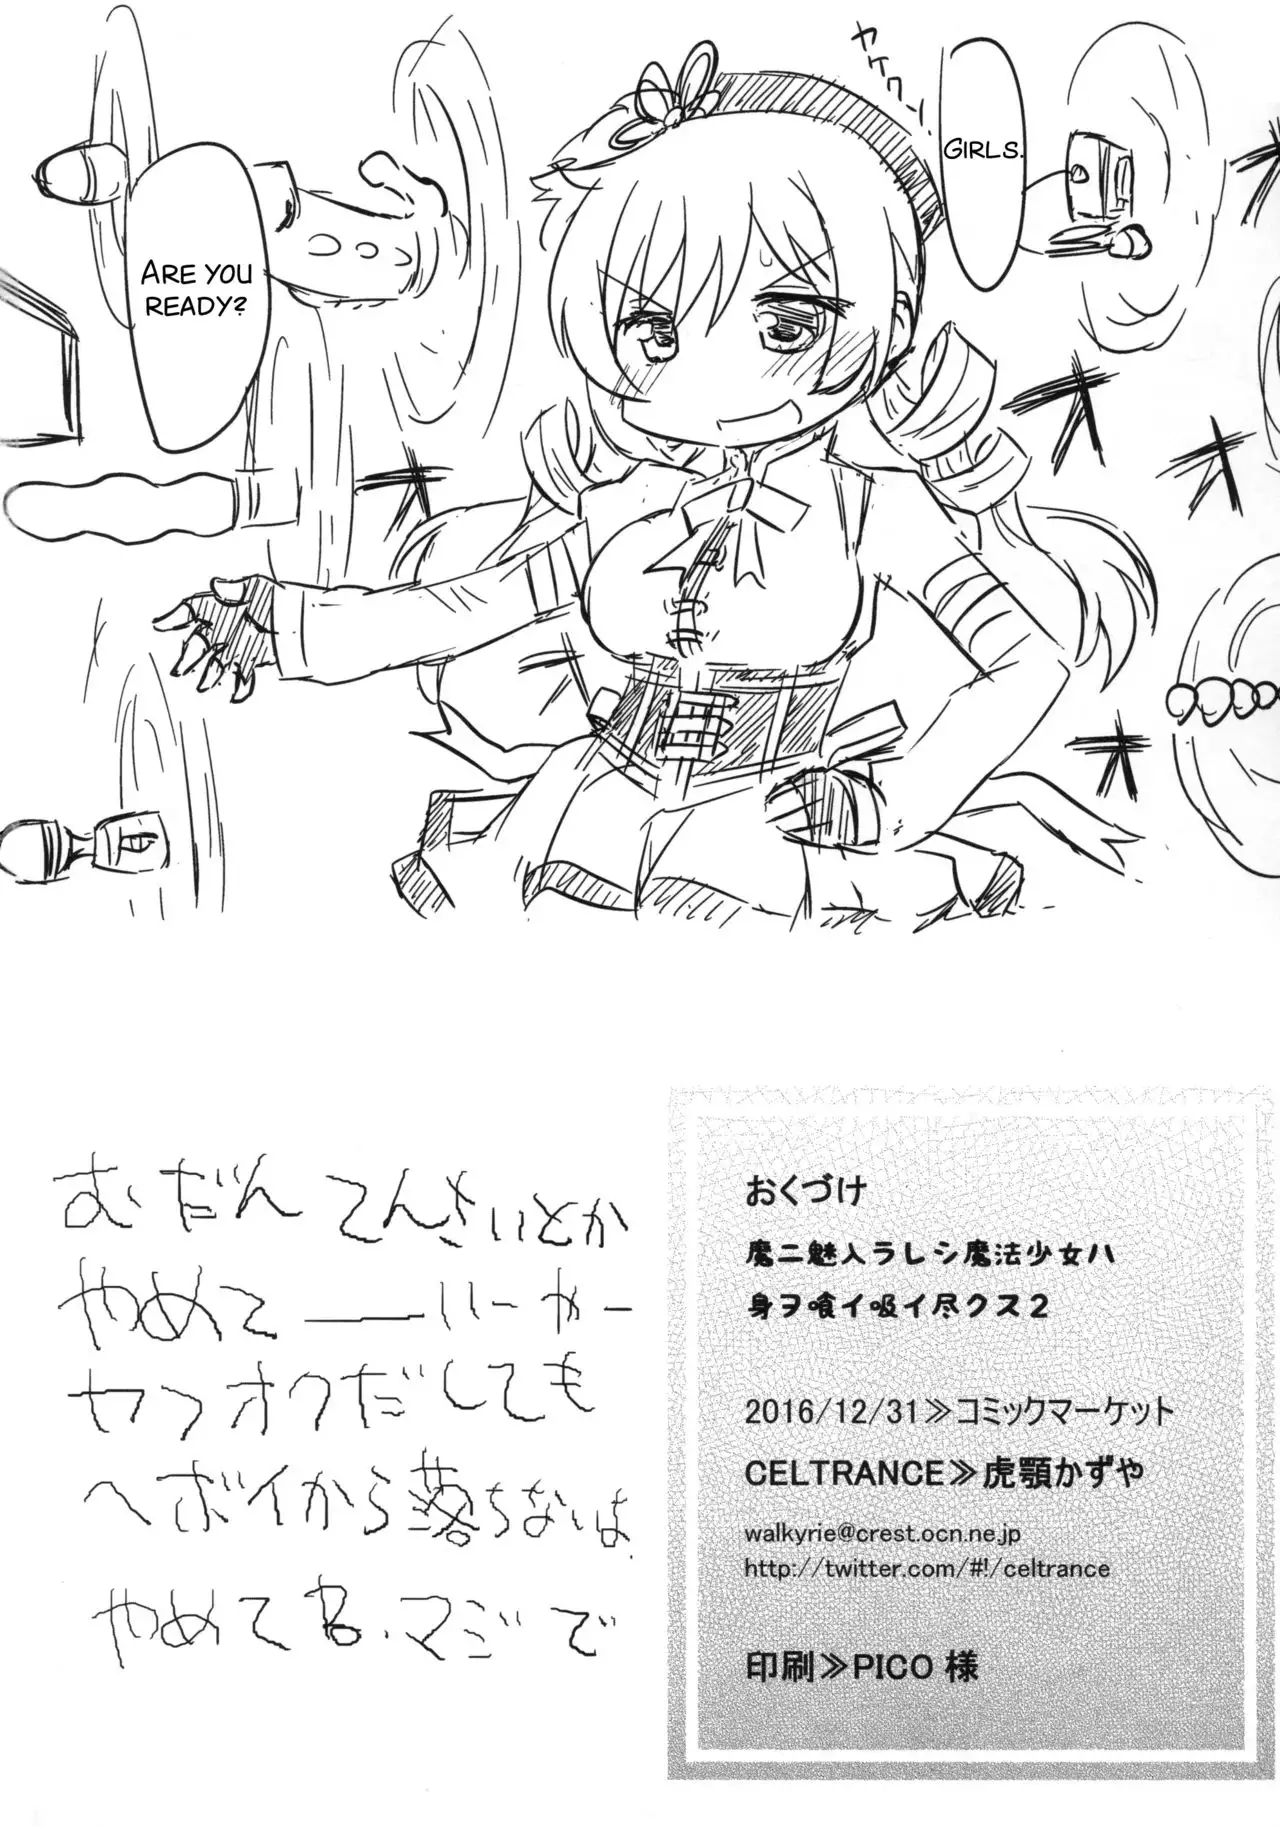 ヤケクソー!
GIRLS.
ARE YOU
READY?
むだんてんさいとか
やめて――いーかー
ヤフオクだしても
ヘボイから落ちないは
やめてる.マジで
おくづけ
魔ニ魅入ラレシ魔法少女ハ
身ヲ喰イ吸イ尽クス2
2016/12/31≫コミックマーケット
CELTRANCE≫虎顎かずや
walkyrie@crest.ocn.ne.jp
http://twitter.com/#!/celtrance
印刷≫PICO 様